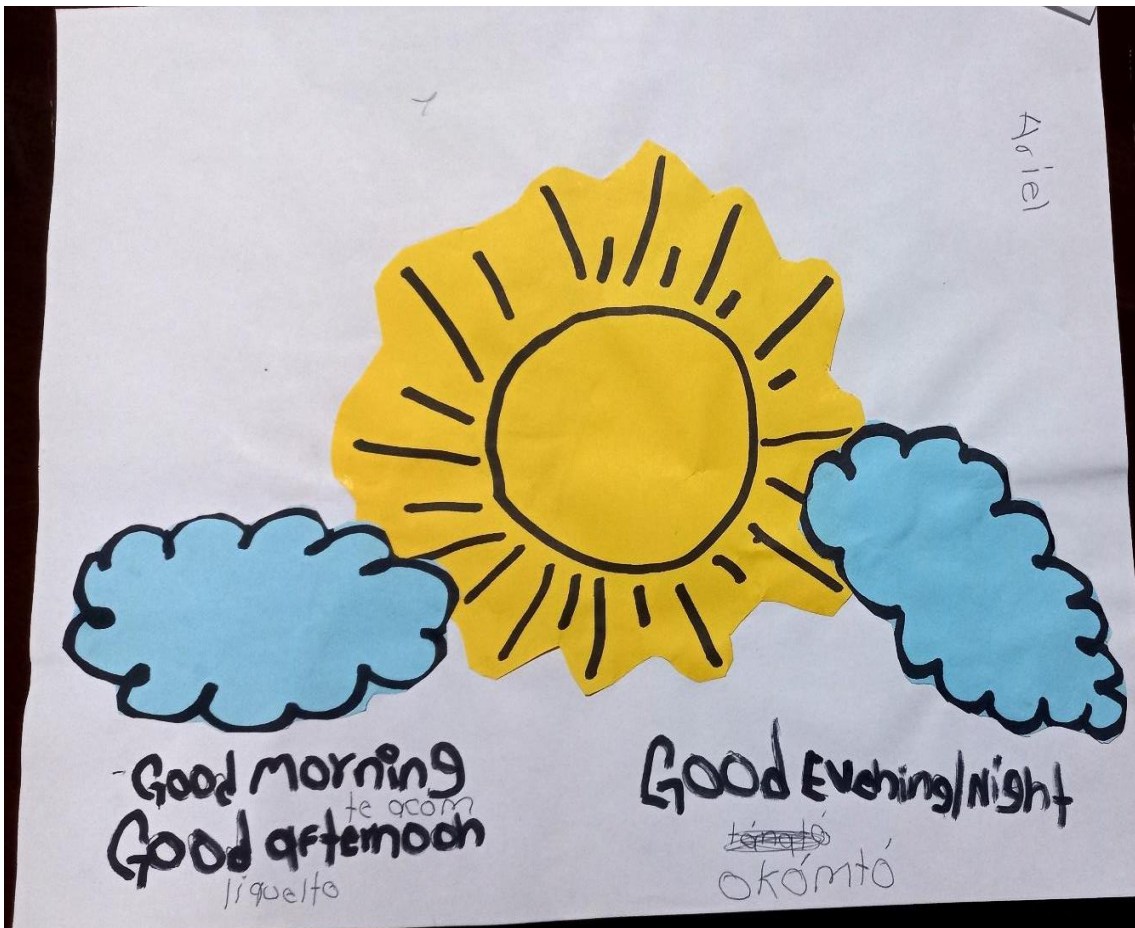 Ariel
Good morning
te acóm
Good afternoon
liquelto
Good Evening/Night
okómtó